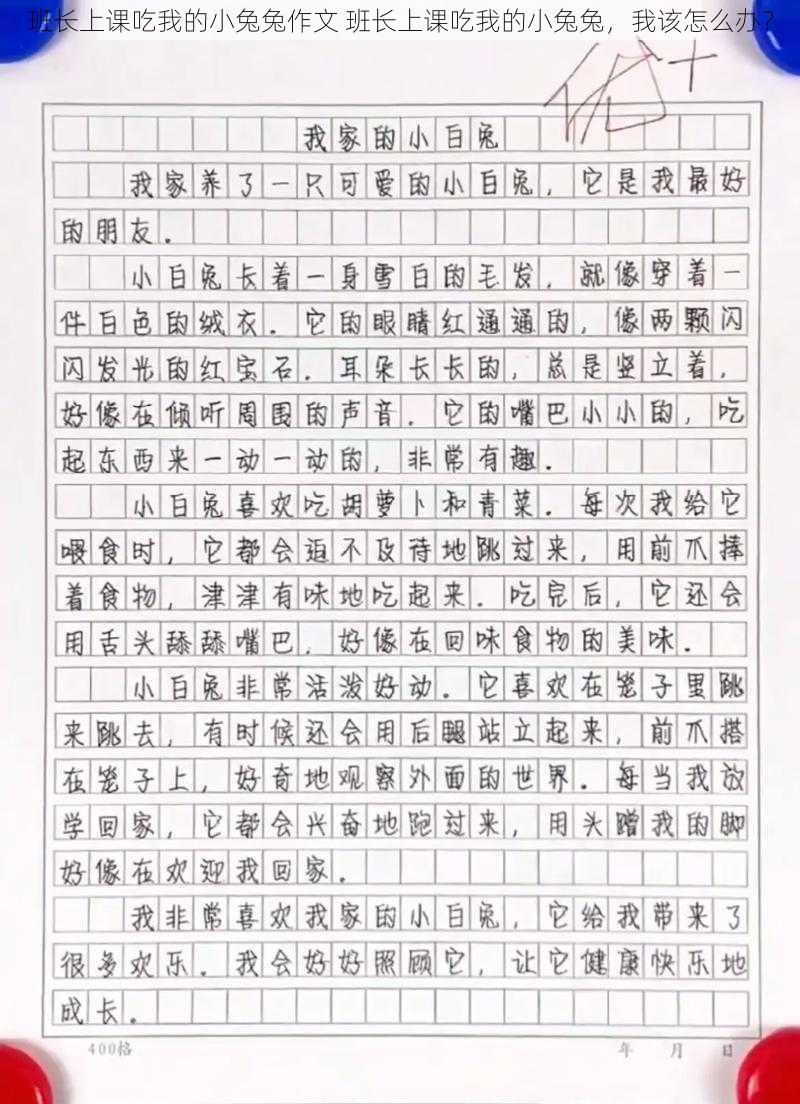 班长上课吃我的小兔兔作文 班长上课吃我的小兔兔，我该怎么办？
优+
我家的小白兔
我家养了一只可爱的小白兔，它是我最好
的朋友．
小白兔长着一身雪白的毛发，就像穿着一
件白色的绒衣．它的眼睛红通通的，像两颗闪
闪发光的红宝石．耳朵长长的，总是竖立着，
好像在倾听周围的声音．它的嘴巴小小的，吃
起东西来一动一动的，非常有趣．
小白兔喜欢吃胡萝卜和青菜．每次我给它
喂食时，它都会迫不及待地跳过来，用前爪捧
着食物，津津有味地吃起来．吃完后，它还会
用舌头舔舔嘴巴，好像在回味食物的美味．
小白兔非常活泼好动．它喜欢在笼子里跳
来跳去，有时候还会用后腿站立起来，前爪搭
在笼子上，好奇地观察外面的世界．每当我放
学回家，它都会兴奋地跑过来，用头蹭我的脚
好像在欢迎我回家．
我非常喜欢我家的小白兔，它给我带来了
很多欢乐．我会好好照顾它，让它健康快乐地
成长．
400格 年 月 日